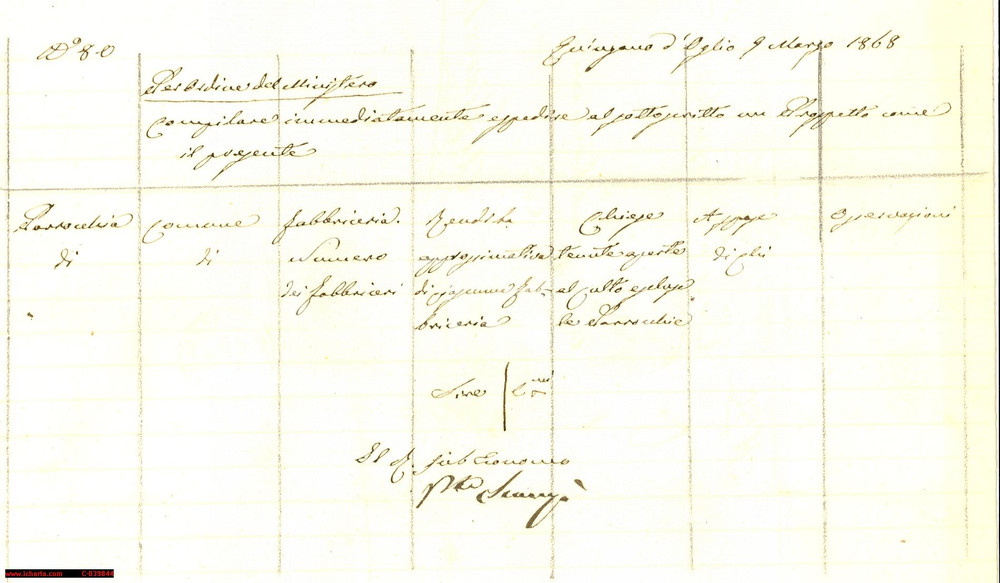 N° 80
Quinzano d'Oglio 9 Marzo 1868
Per Ordine del Ministero
Compilare immediatamente e spedire al sottoscritto un Prospetto come
il presente
Parrocchia
di
Comune
di
Fabbriceria.
Numero
dei fabbriceri
Rendita
approssimativa
di ciascuna fab-
briceria
Lire | C.mi
Chiese
tenute aperte
al culto escluse
le Parrocchie
Appse
di chi
Osservazioni
Il R. Sub Economo
www.icharta.com C-B39844